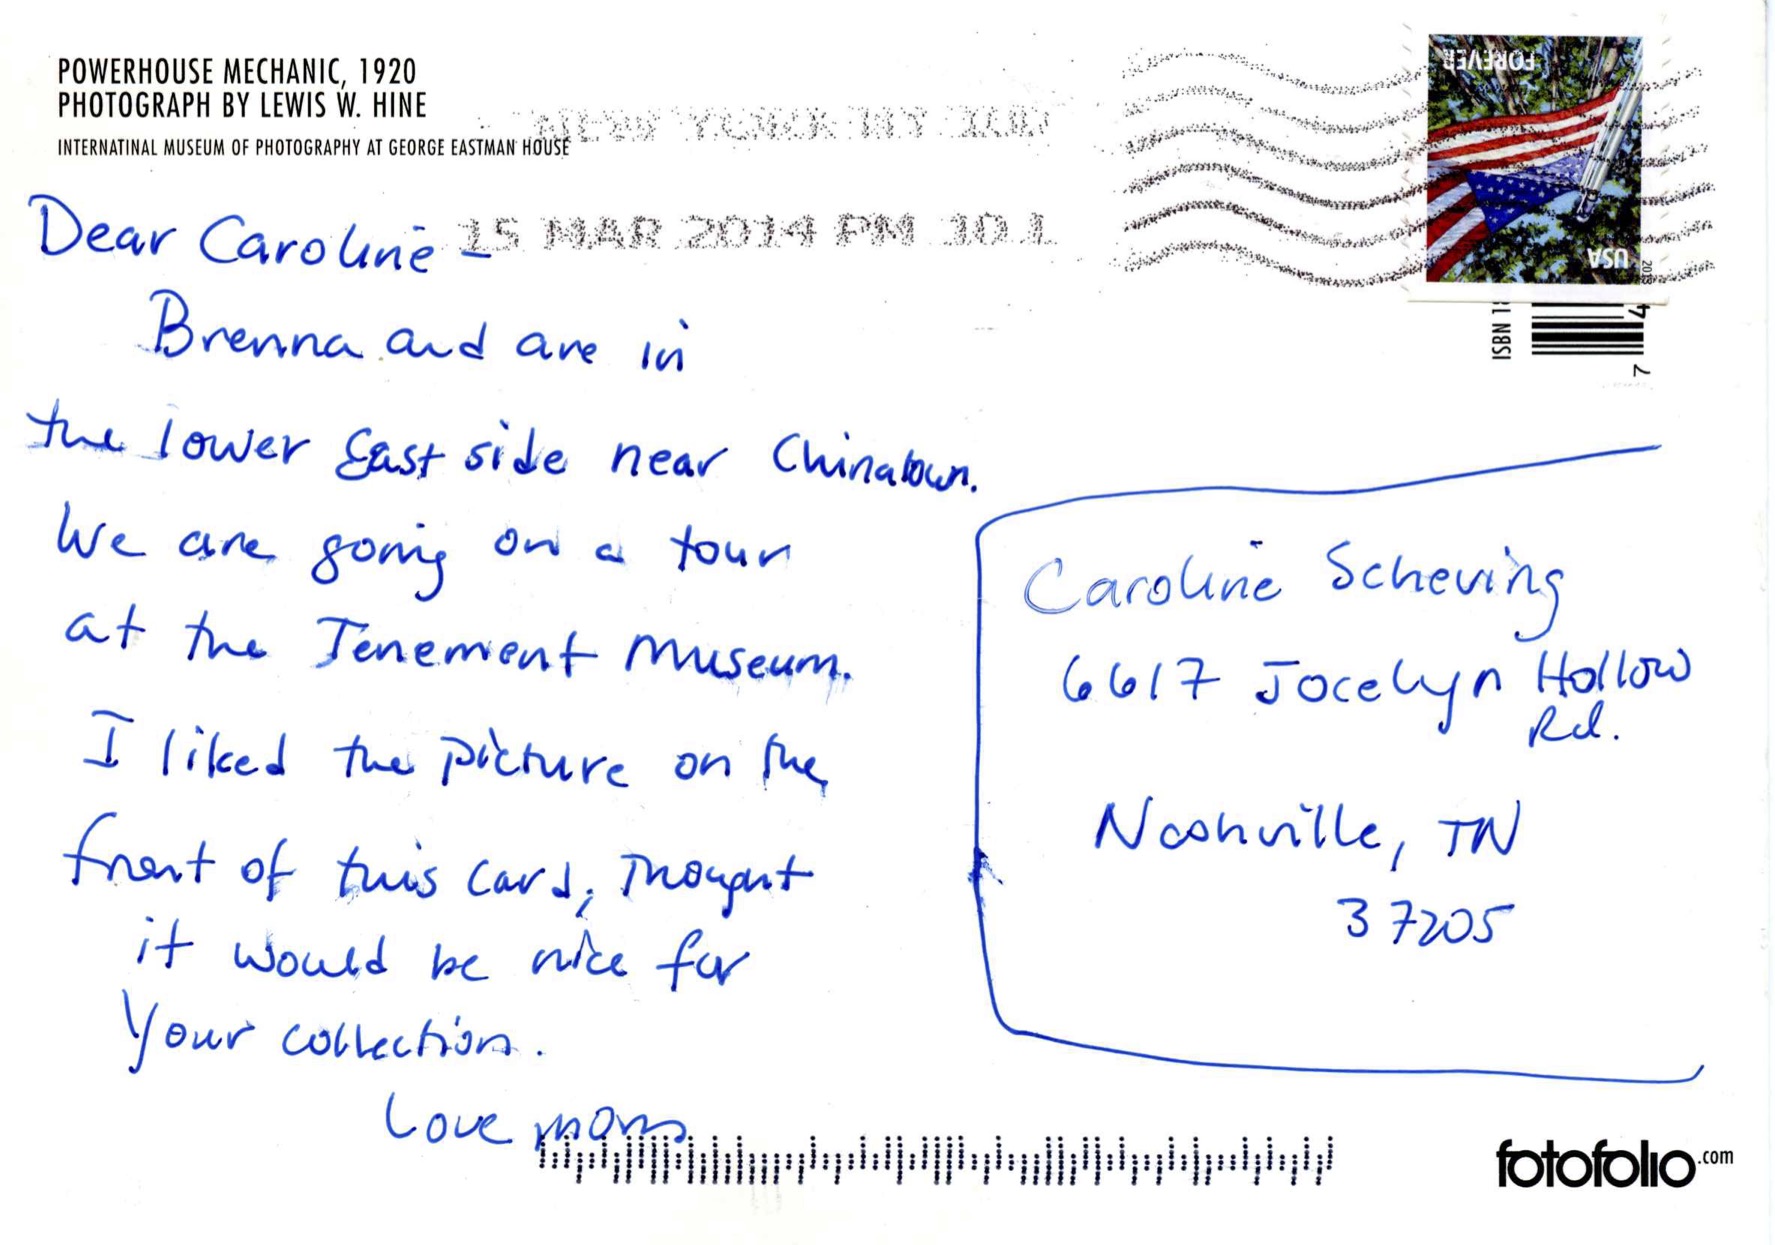 POWERHOUSE MECHANIC, 1920
PHOTOGRAPH BY LEWIS W. HINE
INTERNATINAL MUSEUM OF PHOTOGRAPHY AT GEORGE EASTMAN HOUSE
NEW YORK NY 100
15 MAR 2014 PM 10 L
FOREVER
USA
2013
ISBN 18
4
7
Dear Caroline -
Brenna and are in
the lower East side near Chinatown.
We are going on a tour
at the Tenement Museum.
I liked the picture on the
front of this card, Thought
it would be nice for
Your collection.
Love mom
Caroline Scheving
6617 Jocelyn Hollow
Rd.
Nashville, TN
37205
fotofolio.com